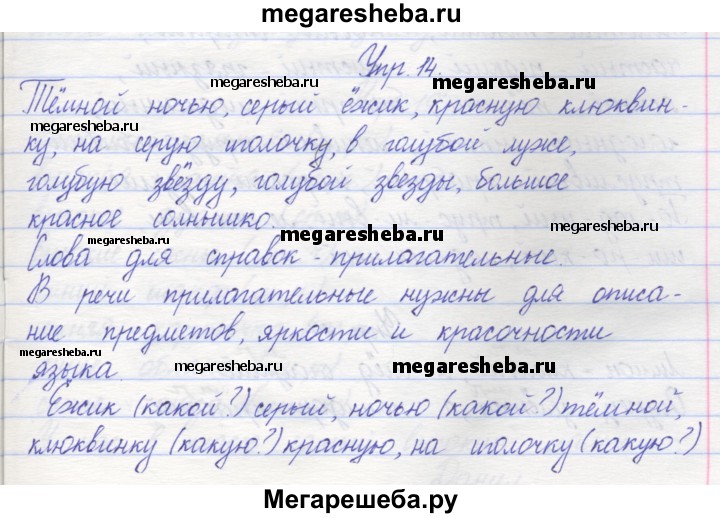 megaresheba.ru
Упр. 14.
megaresheba.ru
megaresheba.ru
Тёмной ночью, серый ёжик, красную клюквин-
megaresheba.ru
ку, на серую иголочку, в голубой луже,
голубую звёзду, голубой звезды, большое
красное солнышко.
megaresheba.ru
megaresheba.ru
Слова для справок - прилагательные.
В речи прилагательные нужны для описа-
ние предметов, яркости и красочности
megaresheba.ru
языка.
megaresheba.ru
megaresheba.ru
Ёжик (какой?) серый, ночью (какой?) тёмной,
клюквинку (какую?) красную, на иголочку (какую?)
Мегарешеба.ру